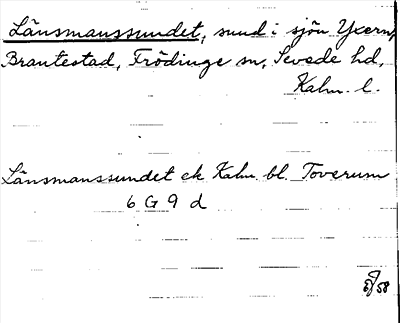 Länsmanssundet, sund i sjön Yxern,
Brantestad, Frödinge sn, Sevede hd,
Kalm. l.
Länsmanssundet ek Kalm bl. Toverum
6 G 9 d
58